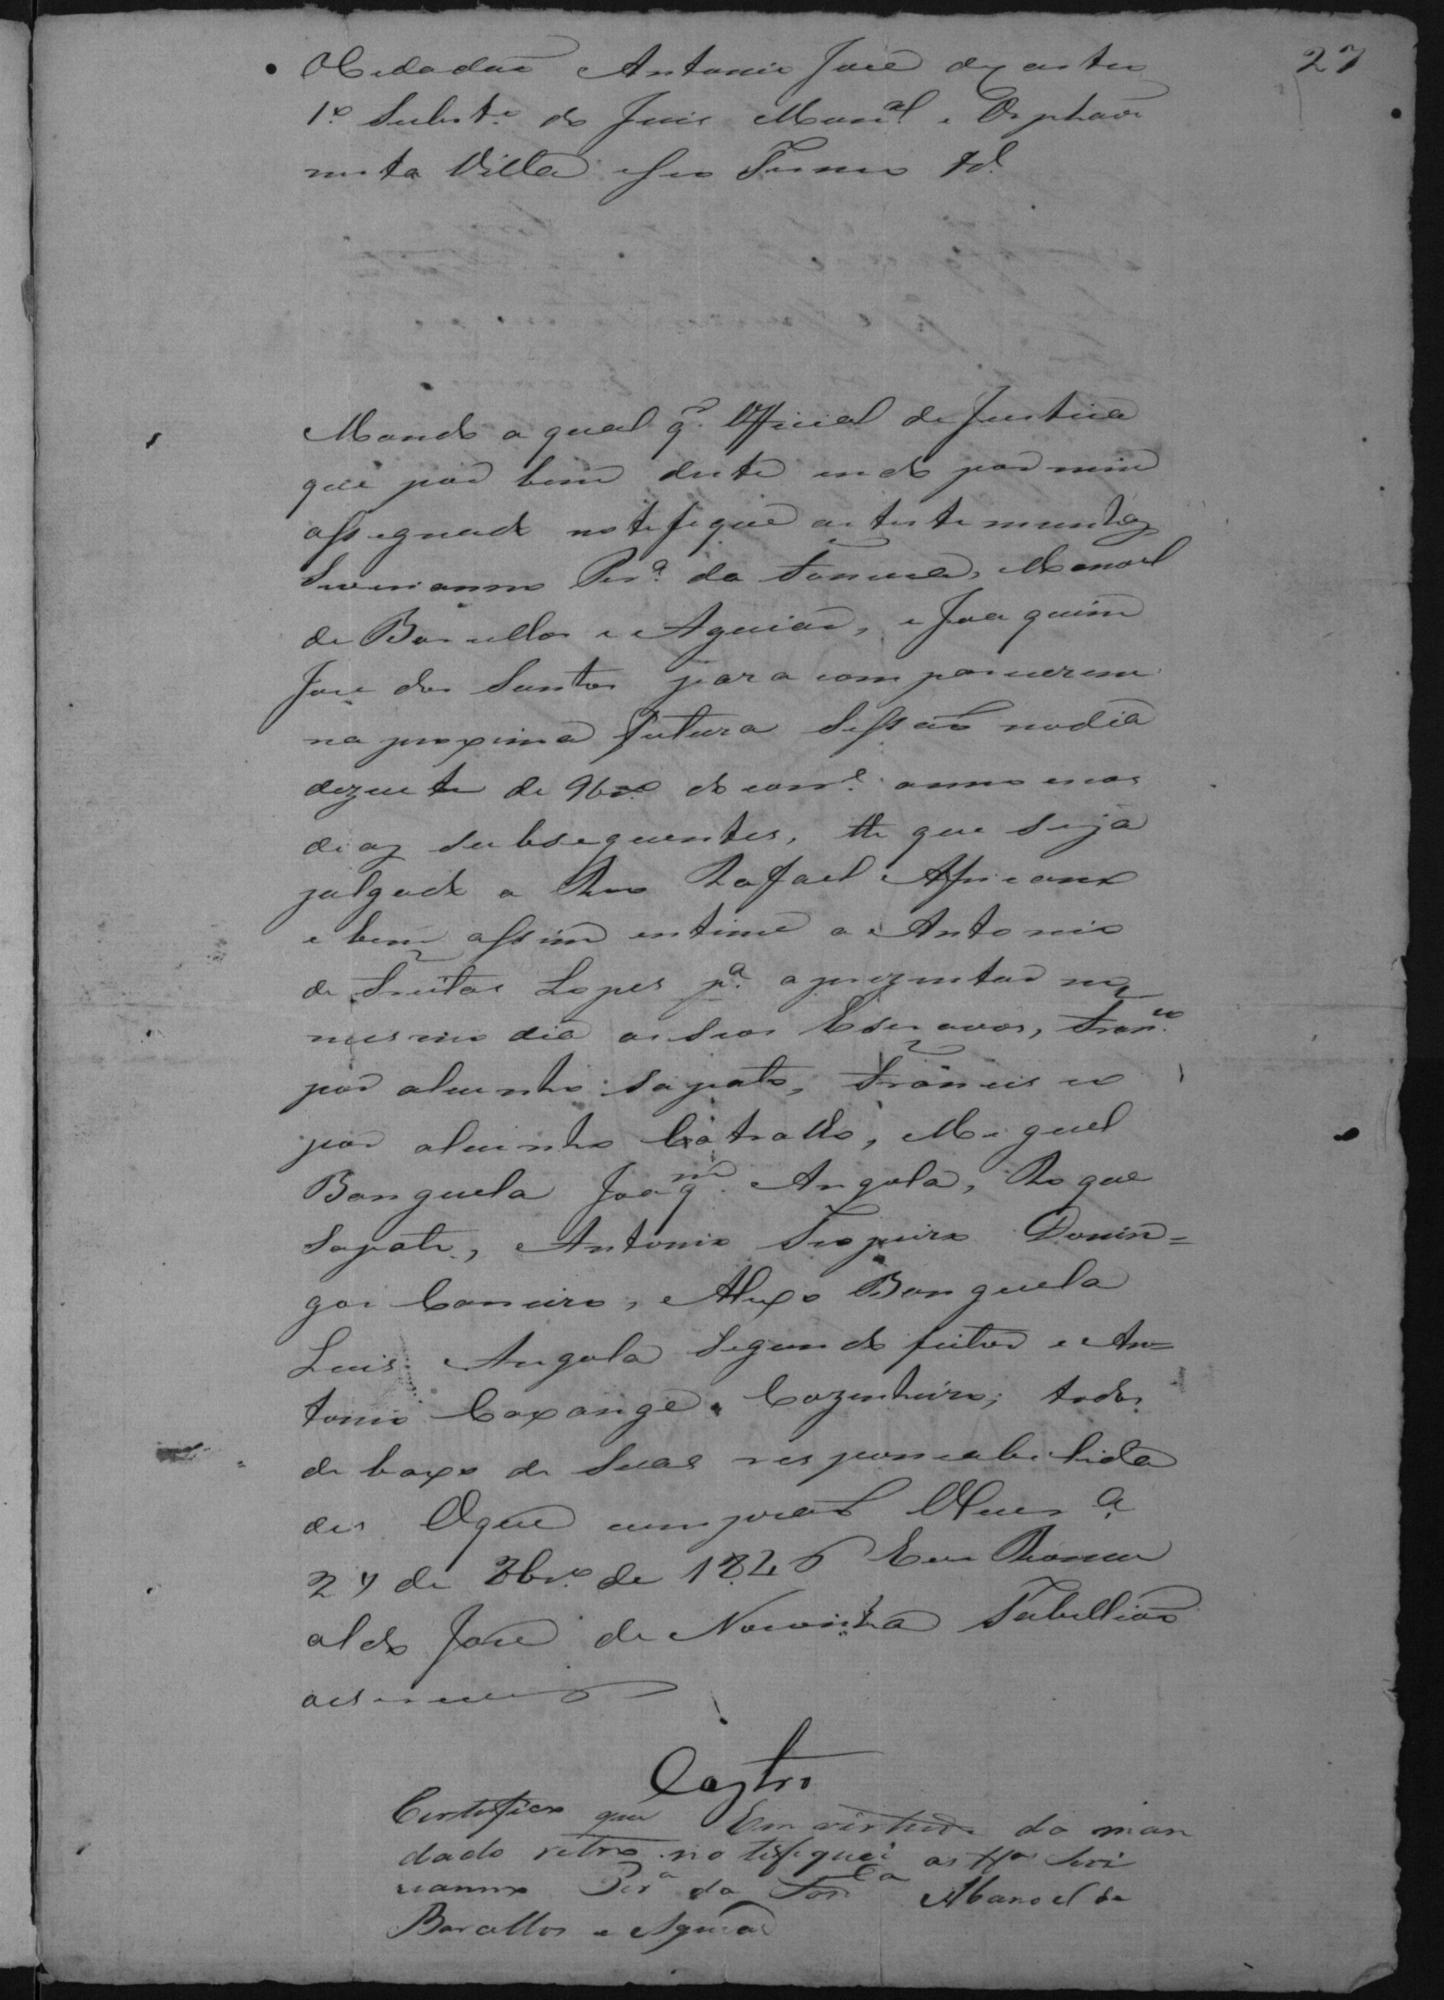 27
O Cidadão Antonio José de Castro
1º Substº do Juis Munal e Orphaos
nesta Villa e seo Termo &.
Mando a qual qr. Official de Justica
que por bem deste indo por mim
assegnado notefique as testemunhaz
Severianno Perª da Fonceca, Manoel
de Barcellos e Aguiar, e Joaquim
Jose dos Santos para comparecerem
na proxima futura Sessaõ no dia
dezecete de 9brº do corre. anno e nos
diaz subsequentes, em que seja
julgado o Reo Rafael Africano
e bem assim entime a Antonio
de Freitas Lopes pª aprezentar no
mesmo dia os seos Escravos, Franco
por alcunho Sapato, Francisco
por alcunho Catrallo, Miguel
Banguela Joaqm Angola, Roque
Sapatr., Antonio Tropeiro Domin=
gos Carreiro, Alexo Banguela
Luis Angola Segundo feitor e An=
tonio Caxange Cozenheiro, todos
debaxo de suas responcabelida
des Oque cumpraõ
27 de 8brº de 1846 Eu Romu
aldo José de Noronha Tabelliaõ
o escrevi
Castro
Certefico que Em virtude do man
dado retro notefiquei as ttas Seve
rianno Perª da Fonca Manoel de
Barcellos e Aguiar